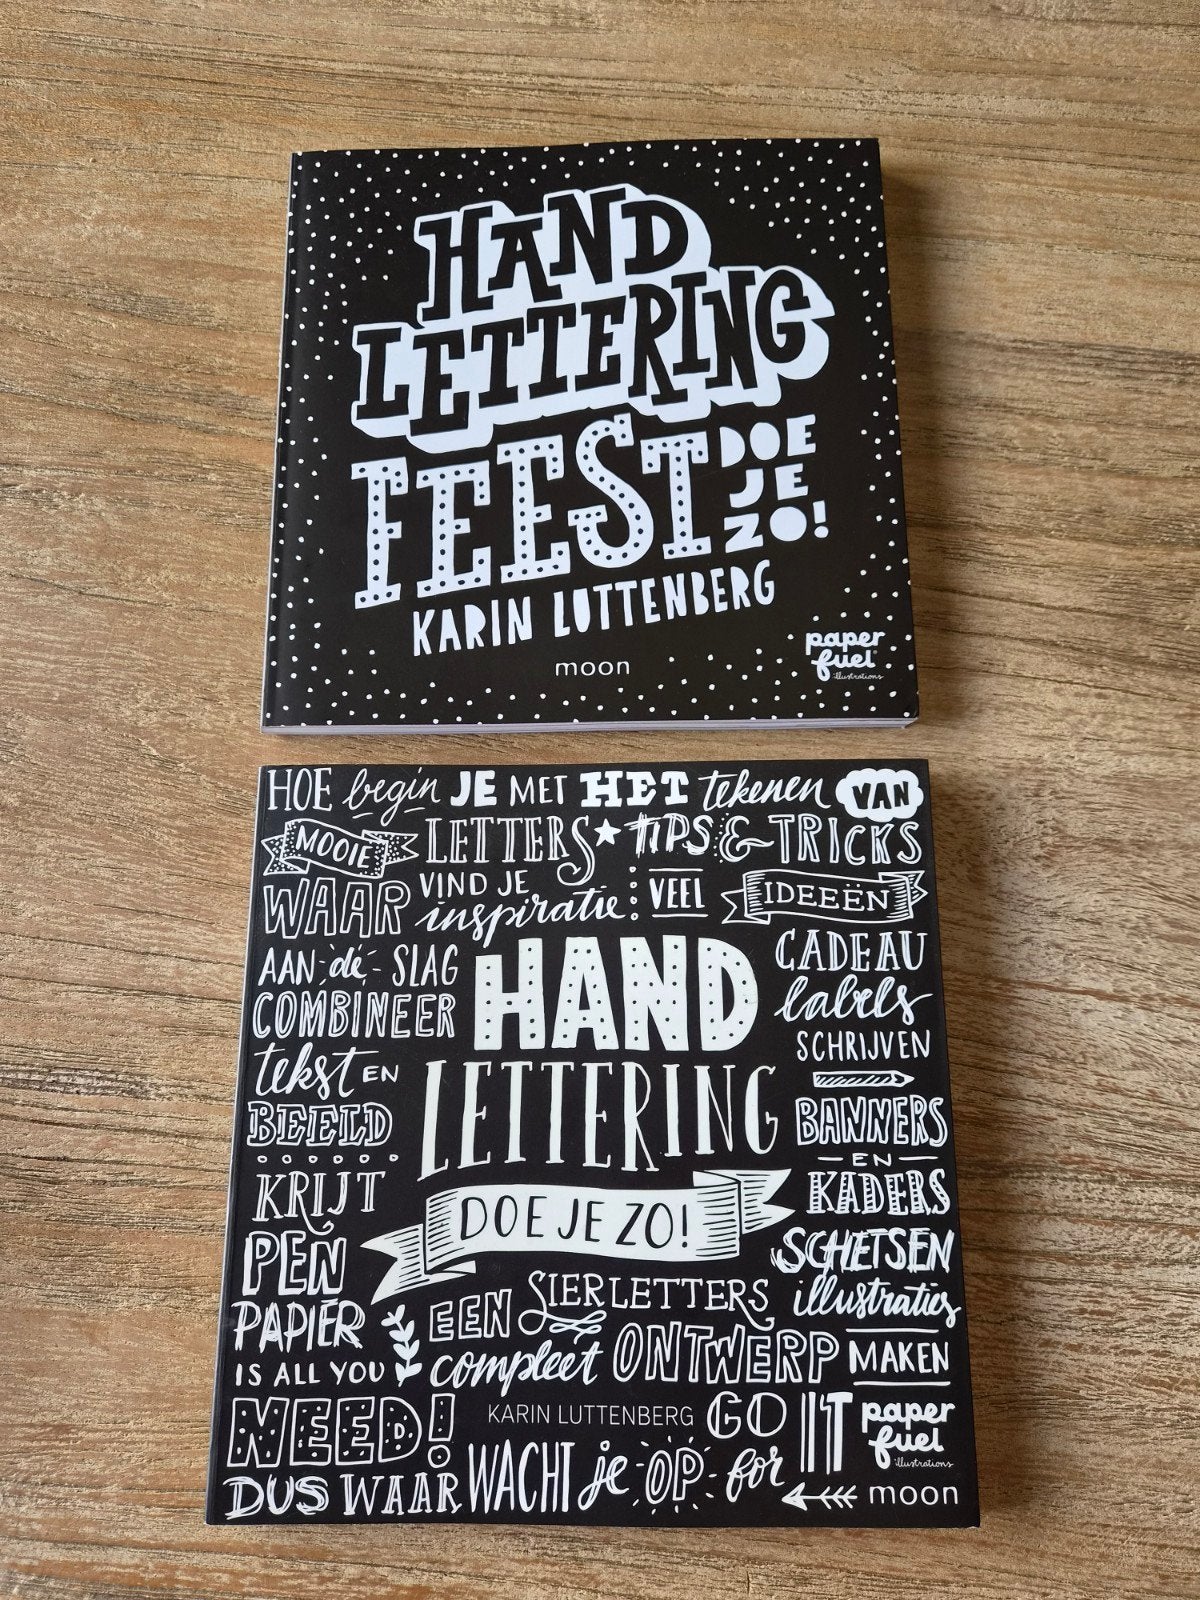 HAND
LETTERING
FEEST DOE
JE
ZO!
KARIN LUTTENBERG
moon
paper
fuel
illustrations
HOE begin JE MET HET tekenen VAN
MOOIE LETTERS TIPS & TRICKS
WAAR VIND JE inspiratie: VEEL IDEEËN
AAN de SLAG
COMBINEER
tekst EN
BEELD
KRIJT
PEN
PAPIER
IS ALL YOU
NEED!
HAND
LETTERING
DOE JE ZO!
CADEAU
labels
SCHRIJVEN
BANNERS
EN
KADERS
SCHETSEN
illustraties
MAKEN
EEN SIERLETTERS
compleet ONTWERP
KARIN LUTTENBERG GO IT
DUS WAAR WACHT je OP for
paper
fuel
illustrations
moon